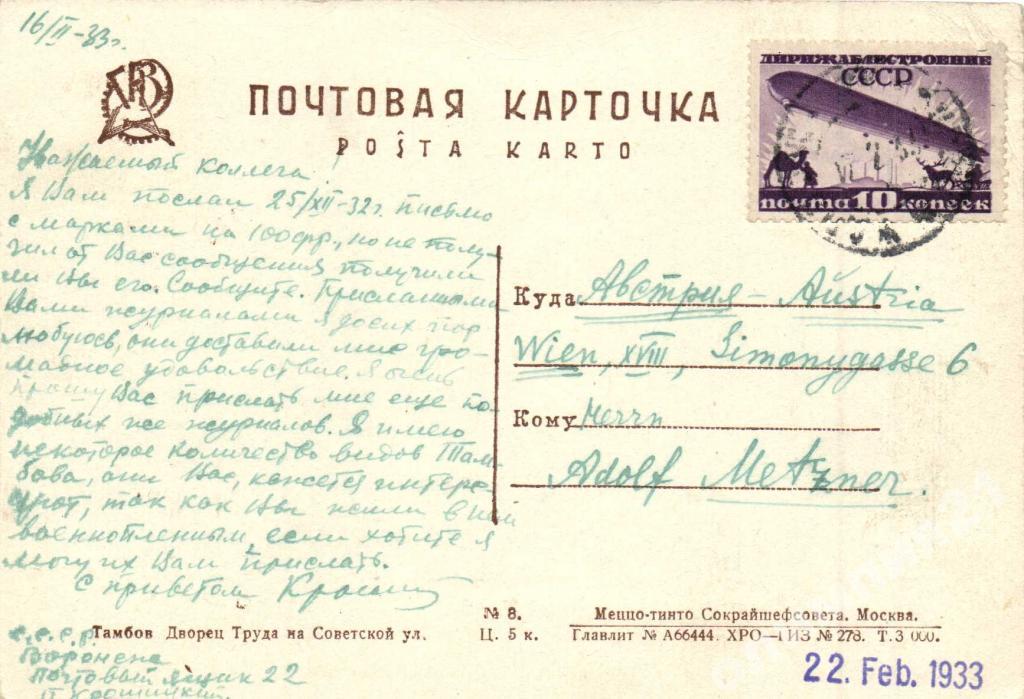 16/II-33г.
ПОЧТОВАЯ КАРТОЧКА
POŜTA KARTO
ДИРИЖАБЛЕСТРОЕНИЕ
СССР
почта 10 копеек
Уважаемый коллега!
Я Вам послал 25/XII-32г. письмо
с марками на 100фр., но не полу-
чил от Вас сообщения получили
ли Вы его. Сообщите. Присланными
Вами журналами я до сих пор
любуюсь, они доставили мне гро-
мадное удовольствие. Я очень
прошу Вас прислать мне еще по-
добных же журналов. Я имею
некоторое количество видов Там-
бова, они Вас, кажется интере-
суют, так как Вы жили в нем
военнопленным, если хотите я
могу их Вам прислать.
С приветом
Куда Австрия - Austria
Wien, XVIII, Simonygasse 6
Кому Herrn
Adolf Metzner.
Тамбов Дворец Труда на Советской ул.
№ 8.
Ц. 5 к.
Меццо-тинто Сокрайшефсовета. Москва.
Главлит № А66444. ХРО—ГИЗ № 278. Т.3 000.
С.С.С.Р.
Воронеж
почтовый ящик 22
22. Feb. 1933